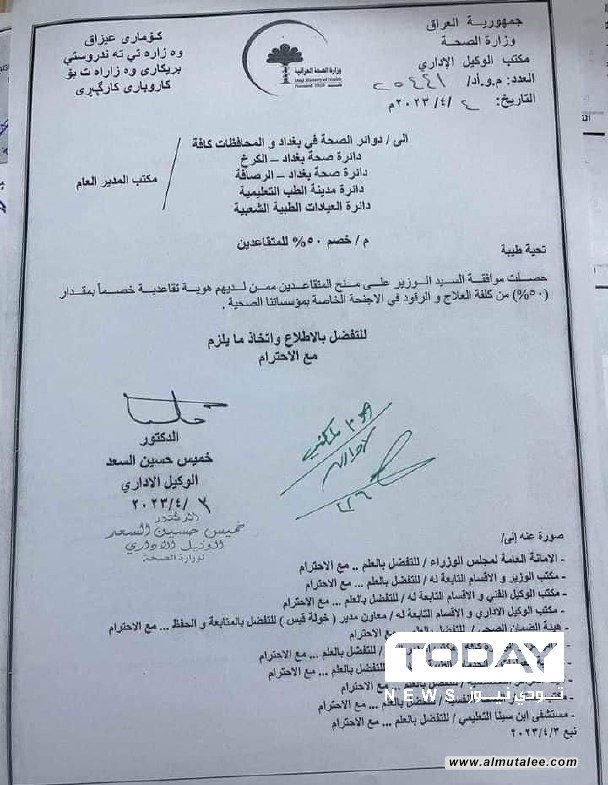 جمهورية العراق
وزارة الصحة
مكتب الوكيل الإداري
العدد: م.و.أد/ ٢٥٤٤١
التاريخ: ٤/٤/٢٠٢٣م
كۆماری عێراق
وه زاره تي ته ندروستي
بريكاري وه زاراه ت بۆ
كاروباري كارگێری
وزارة الصحة العراقية
Iraqi Ministry of Health
Founded 1920
الى / دوائر الصحة في بغداد و المحافظات كافة
دائرة صحة بغداد – الكرخ
دائرة صحة بغداد – الرصافة
دائرة مدينة الطب التعليمية
دائرة العيادات الطبية الشعبية
مكتب المدير العام
م / خصم ٥٠% للمتقاعدين
تحية طيبة
حصلت موافقة السيد الوزير على منح المتقاعدين ممن لديهم هوية تقاعدية خصماً بمقدار
(٥٠%) من كلفة العلاج و الرقود في الاجنحة الخاصة بمؤسساتنا الصحية .
للتفضل بالاطلاع واتخاذ ما يلزم
مع الاحترام
الدكتور
خميس حسين السعد
الوكيل الاداري
٣/٤/٢٠٢٣
الدكتور
خميس حسين السعد
الوكيل الاداري
لوزارة الصحة
صورة عنه إلى/
- الامانة العامة لمجلس الوزراء / للتفضل بالعلم .. مع الاحترام
- مكتب الوزير و الاقسام التابعة له / للتفضل بالعلم ... مع الاحترام
- مكتب الوكيل الفني و الاقسام التابعة له / للتفضل بالعلم ... مع الاحترام
- مكتب الوكيل الاداري و الاقسام التابعة له / معاون مدير ( خولة قيس ) للتفضل بالمتابعة و الحفظ ... مع الاحترام
- هيئة الضمان الصحي / للتفضل بالعلم ... مع الاحترام
/ للتفضل بالعلم ... مع الاحترام
للتفضل بالعلم ... مع الاحترام
مع الاحترام
للتفضل بالعلم ... مع الاحترام
- مستشفى ابن سينا التعليمي / للتفضل بالعلم ... مع الاحترام
نبع ٢٠٢٣/٤/٣
TODAY
NEWS تودي نيوز
www.almutalee.com